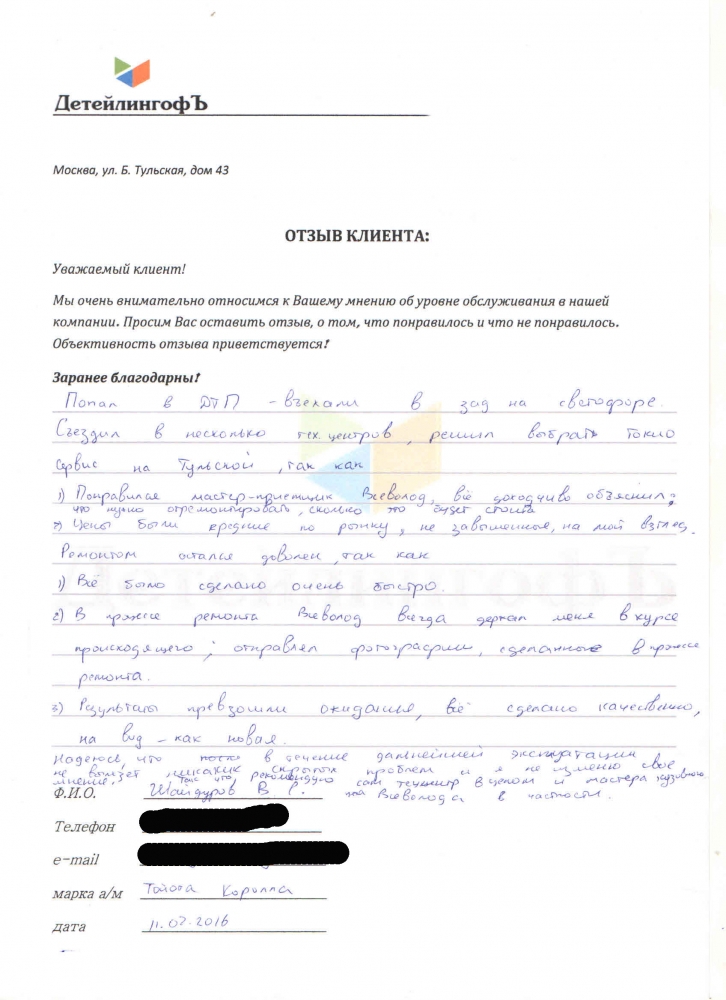 ДетейлингофЪ
Москва, ул. Б. Тульская, дом 43
ОТЗЫВ КЛИЕНТА:
Уважаемый клиент!
Мы очень внимательно относимся к Вашему мнению об уровне обслуживания в нашей
компании. Просим Вас оставить отзыв, о том, что понравилось и что не понравилось.
Объективность отзыва приветствуется!
Заранее благодарны!
Попал в ДТП - въехали в зад на светофоре.
Съездил в несколько тех. центров, решил выбрать Токио
Сервис на Тульской, так как
1) Понравился мастер-приемщик Всеволод, всё доходчиво объяснил,
что нужно отремонтировать, сколько это будет стоить
2) Цены были средние по рынку, не завышенные, на мой взгляд.
Ремонтом остался доволен, так как
1) Всё было сделано очень быстро.
2) В процессе ремонта Всеволод всегда держал меня в курсе
происходящего; отправлял фотографии, сделанные в процессе
ремонта.
3) Результаты превзошли ожидания, всё сделано качественно,
на вид - как новая.
Надеюсь, что в течение дальнейшей эксплуатации
не вылезет никаких скрытых проблем и я не изменю свое
мнение. Так что, рекомендую сам техцентр в целом и мастера кузовного
Всеволода в частности.
Ф.И.О. Шайдуров В. С.
Телефон
e-mail
марка а/м Тойота Королла
дата 11.02.2016